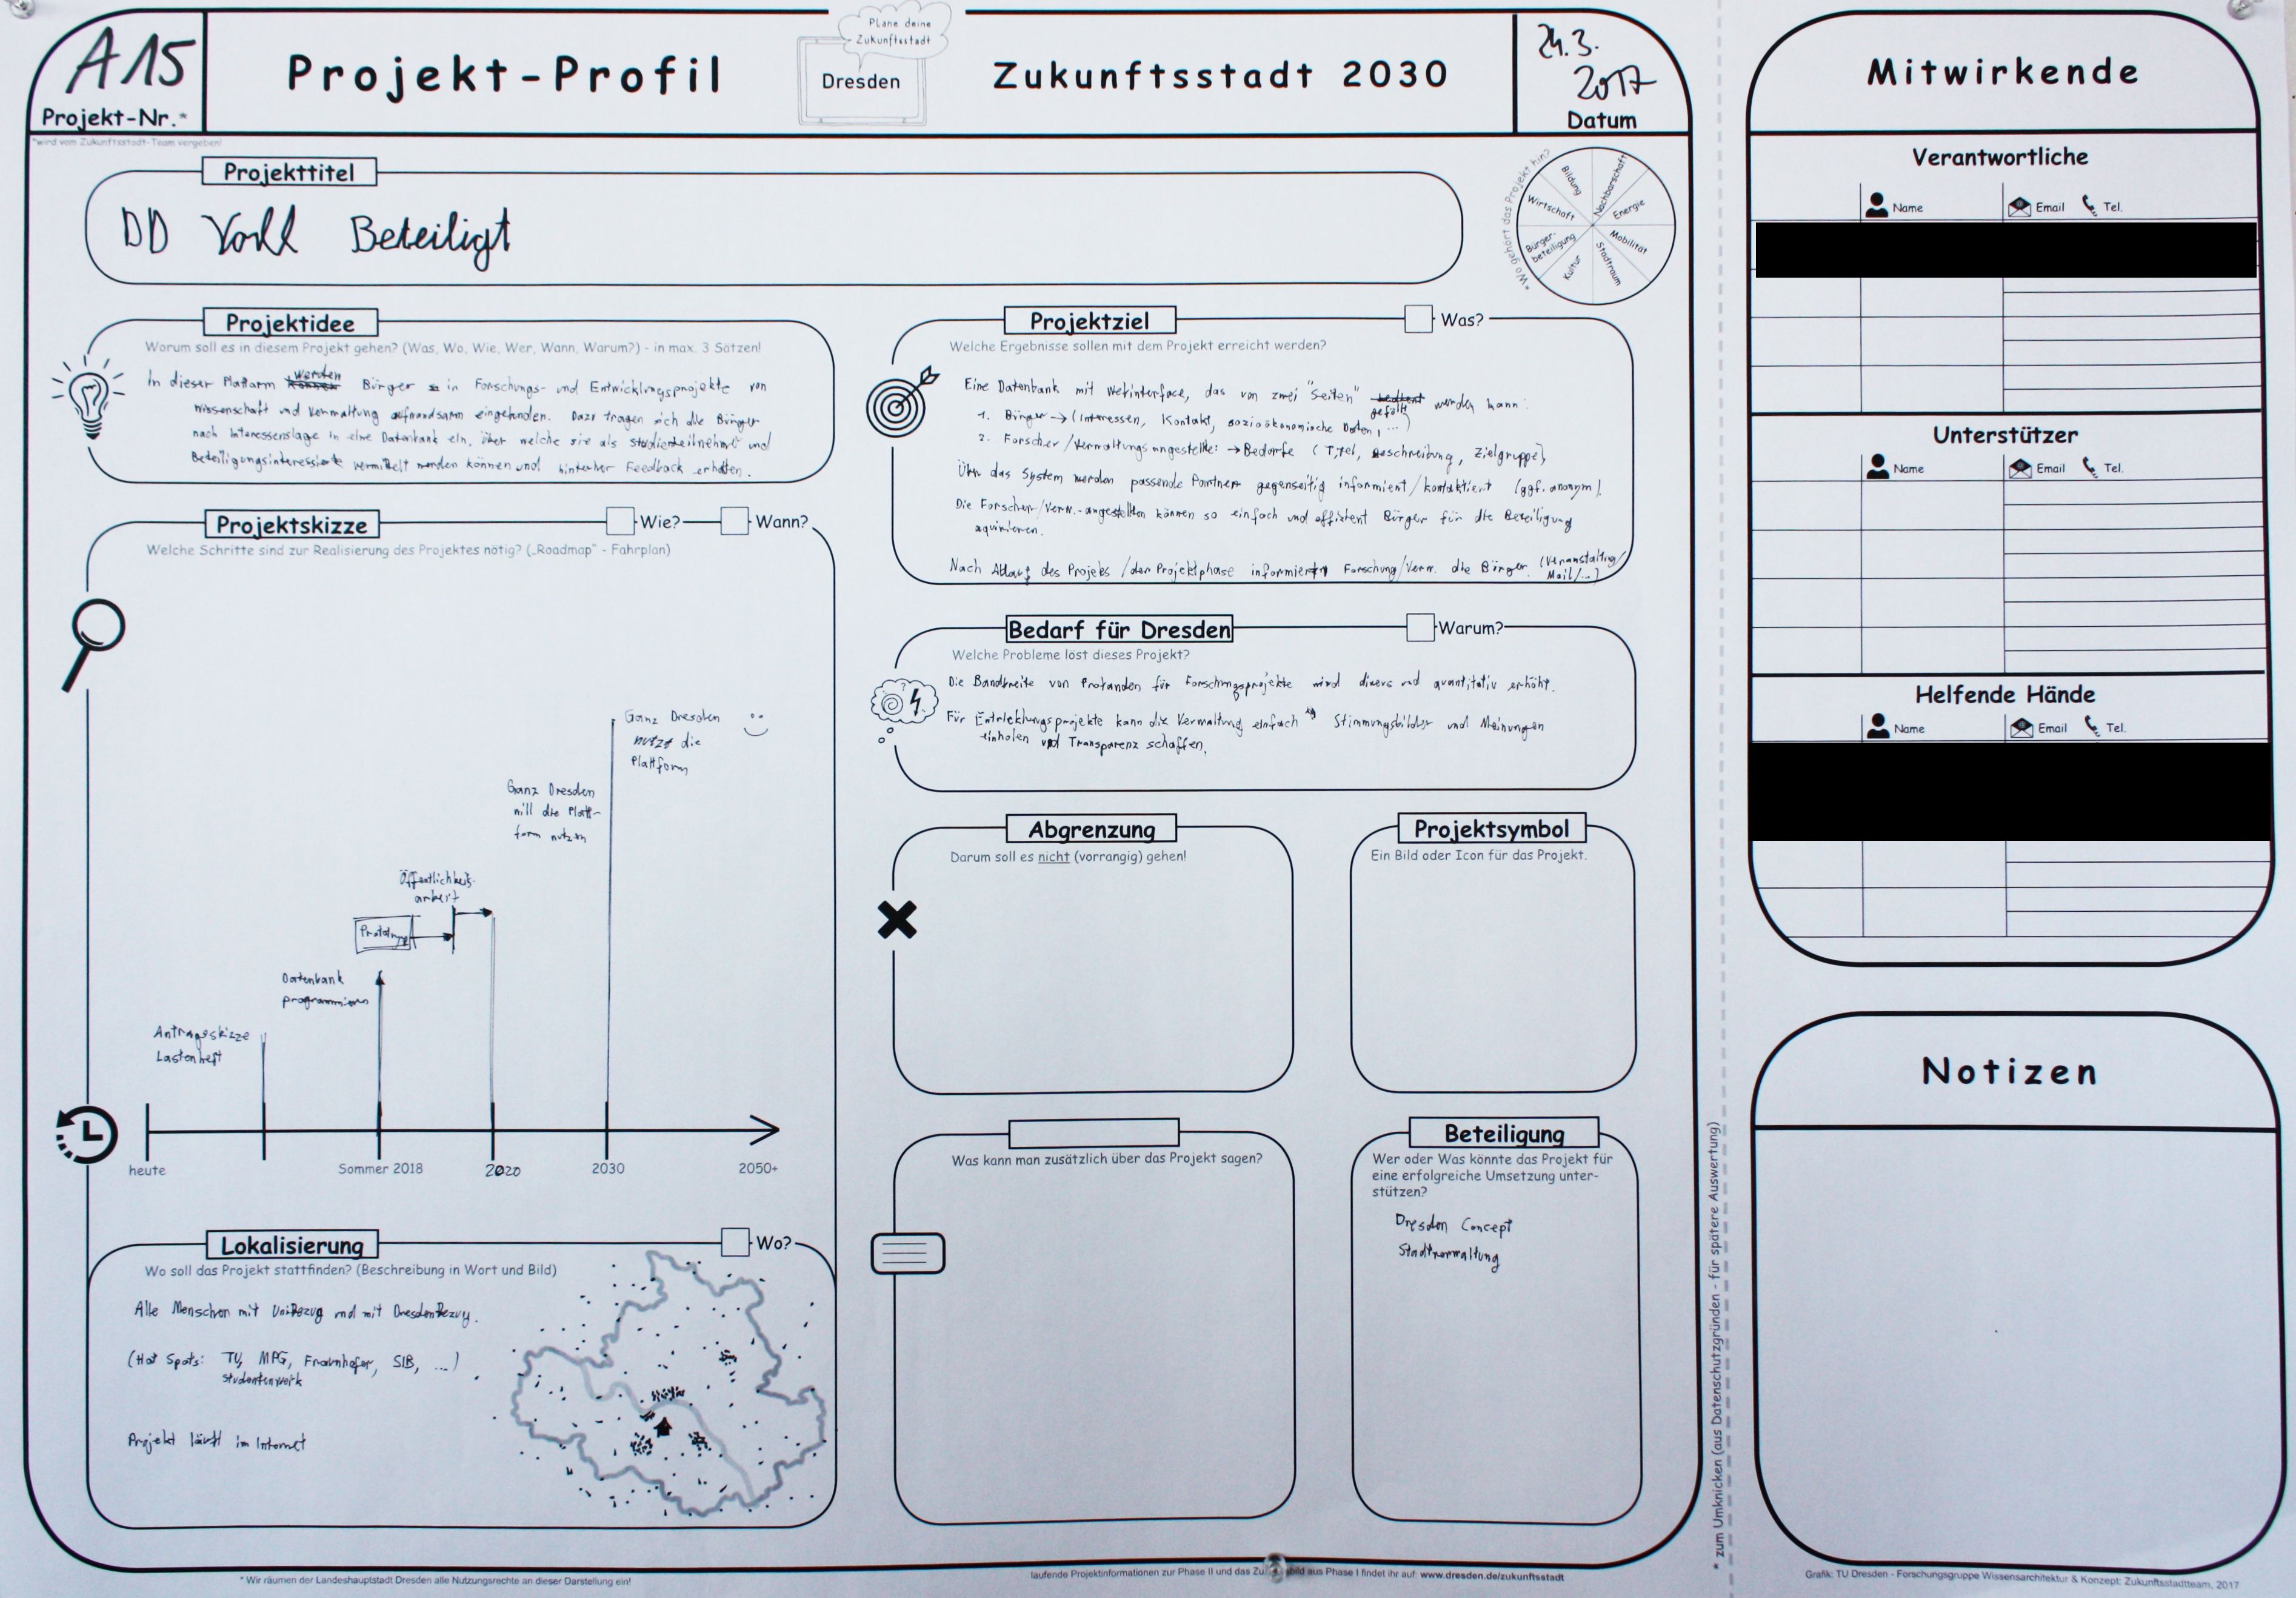 A15
Projekt-Nr.*
Projekt-Profil
Plane deine
Zukunftsstadt
Dresden
Zukunftsstadt 2030
24.3.
2017
Datum
*wird vom Zukunftsstadt-Team vergeben!
Projekttitel
DD Voll Beteiligt
*Wo gehört das Projekt hin?
Bildung
Nachbarschaft
Energie
Mobilität
Stadtraum
Kultur
Bürger-
beteiligung
Wirtschaft
Projektidee
Worum soll es in diesem Projekt gehen? (Was, Wo, Wie, Wer, Wann, Warum?) - in max. 3 Sätzen!
In dieser Plattform werden Bürger in Forschungs- und Entwicklungsprojekte von
Wissenschaft und Verwaltung aufwandsarm eingebunden. Dazu tragen sich die Bürger
nach Interessenslage in eine Datenbank ein, über welche sie als Studienteilnehmer und
Beteiligungsinteressierte vermittelt werden können und hinterher Feedback erhalten.
Projektskizze
Wie?
Wann?
Welche Schritte sind zur Realisierung des Projektes nötig? („Roadmap" - Fahrplan)
Ganz Dresden
nutzt die
Plattform
Ganz Dresden
will die Platt-
form nutzen
Öffentlichkeits-
arbeit
Prototyp
Datenbank
programmieren
Antragsskizze
Lastenheft
heute
Sommer 2018
2020
2030
2050+
Lokalisierung
Wo?
Wo soll das Projekt stattfinden? (Beschreibung in Wort und Bild)
Alle Menschen mit UniBezug und mit DresdenBezug.
(Hot Spots: TU, MPG, Fraunhofer, SIB, ...)
Studentenwerk
Projekt läuft im Internet
Projektziel
Was?
Welche Ergebnisse sollen mit dem Projekt erreicht werden?
Eine Datenbank mit Webinterface, das von zwei "Seiten" bedient gefüllt werden kann:
1. Bürger → (Interessen, Kontakt, sozioökonomische Daten, ...)
2. Forscher/Verwaltungsangestellte: → Bedarfe (Titel, Beschreibung, Zielgruppe)
Über das System werden passende Partner gegenseitig informiert/kontaktiert (ggf. anonym).
Die Forscher/Verw.-angestellten können so einfach und effizient Bürger für die Beteiligung
aquirieren.
Nach Ablauf des Projeks /der Projektphase informieren Forschung/Verw. die Bürger. (Veranstaltung/
Mail/...)
Bedarf für Dresden
Warum?
Welche Probleme löst dieses Projekt?
Die Bandbreite von Probanden für Forschungsprojekte wird divers und quantitativ erhöht.
Für Entwicklungsprojekte kann die Verwaltung einfach Stimmungsbilder und Meinungen
einholen und Transparenz schaffen.
Abgrenzung
Darum soll es nicht (vorrangig) gehen!
Projektsymbol
Ein Bild oder Icon für das Projekt.
Was kann man zusätzlich über das Projekt sagen?
Beteiligung
Wer oder Was könnte das Projekt für
eine erfolgreiche Umsetzung unter-
stützen?
Dresden Concept
Stadtverwaltung
* zum Umknicken (aus Datenschutzgründen - für spätere Auswertung)
Mitwirkende
Verantwortliche
Name
Email
Tel.
Unterstützer
Name
Email
Tel.
Helfende Hände
Name
Email
Tel.
Notizen
* Wir räumen der Landeshauptstadt Dresden alle Nutzungsrechte an dieser Darstellung ein!
laufende Projektinformationen zur Phase II und das bild aus Phase I findet ihr auf: www.dresden.de/zukunftsstadt
Grafik: TU Dresden - Forschungsgruppe Wissensarchitektur & Konzept: Zukunftsstadtteam, 2017